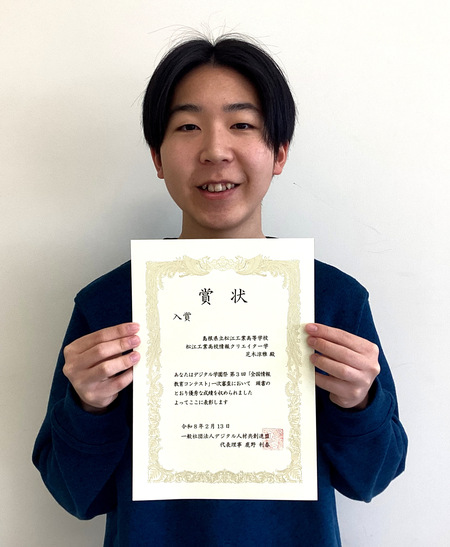 賞状
入賞
島根県立松江工業高等学校
松江工業高校情報クリエイター学
花本涼雅 殿
あなたはデジタル学園祭 第3回「全国情報
教育コンテスト」一次審査において 頭書の
とおり優秀な成績を収められました
よってここに表彰します
令和8年2月13日
一般社団法人デジタル人材共創連盟
代表理事 鹿野 利春